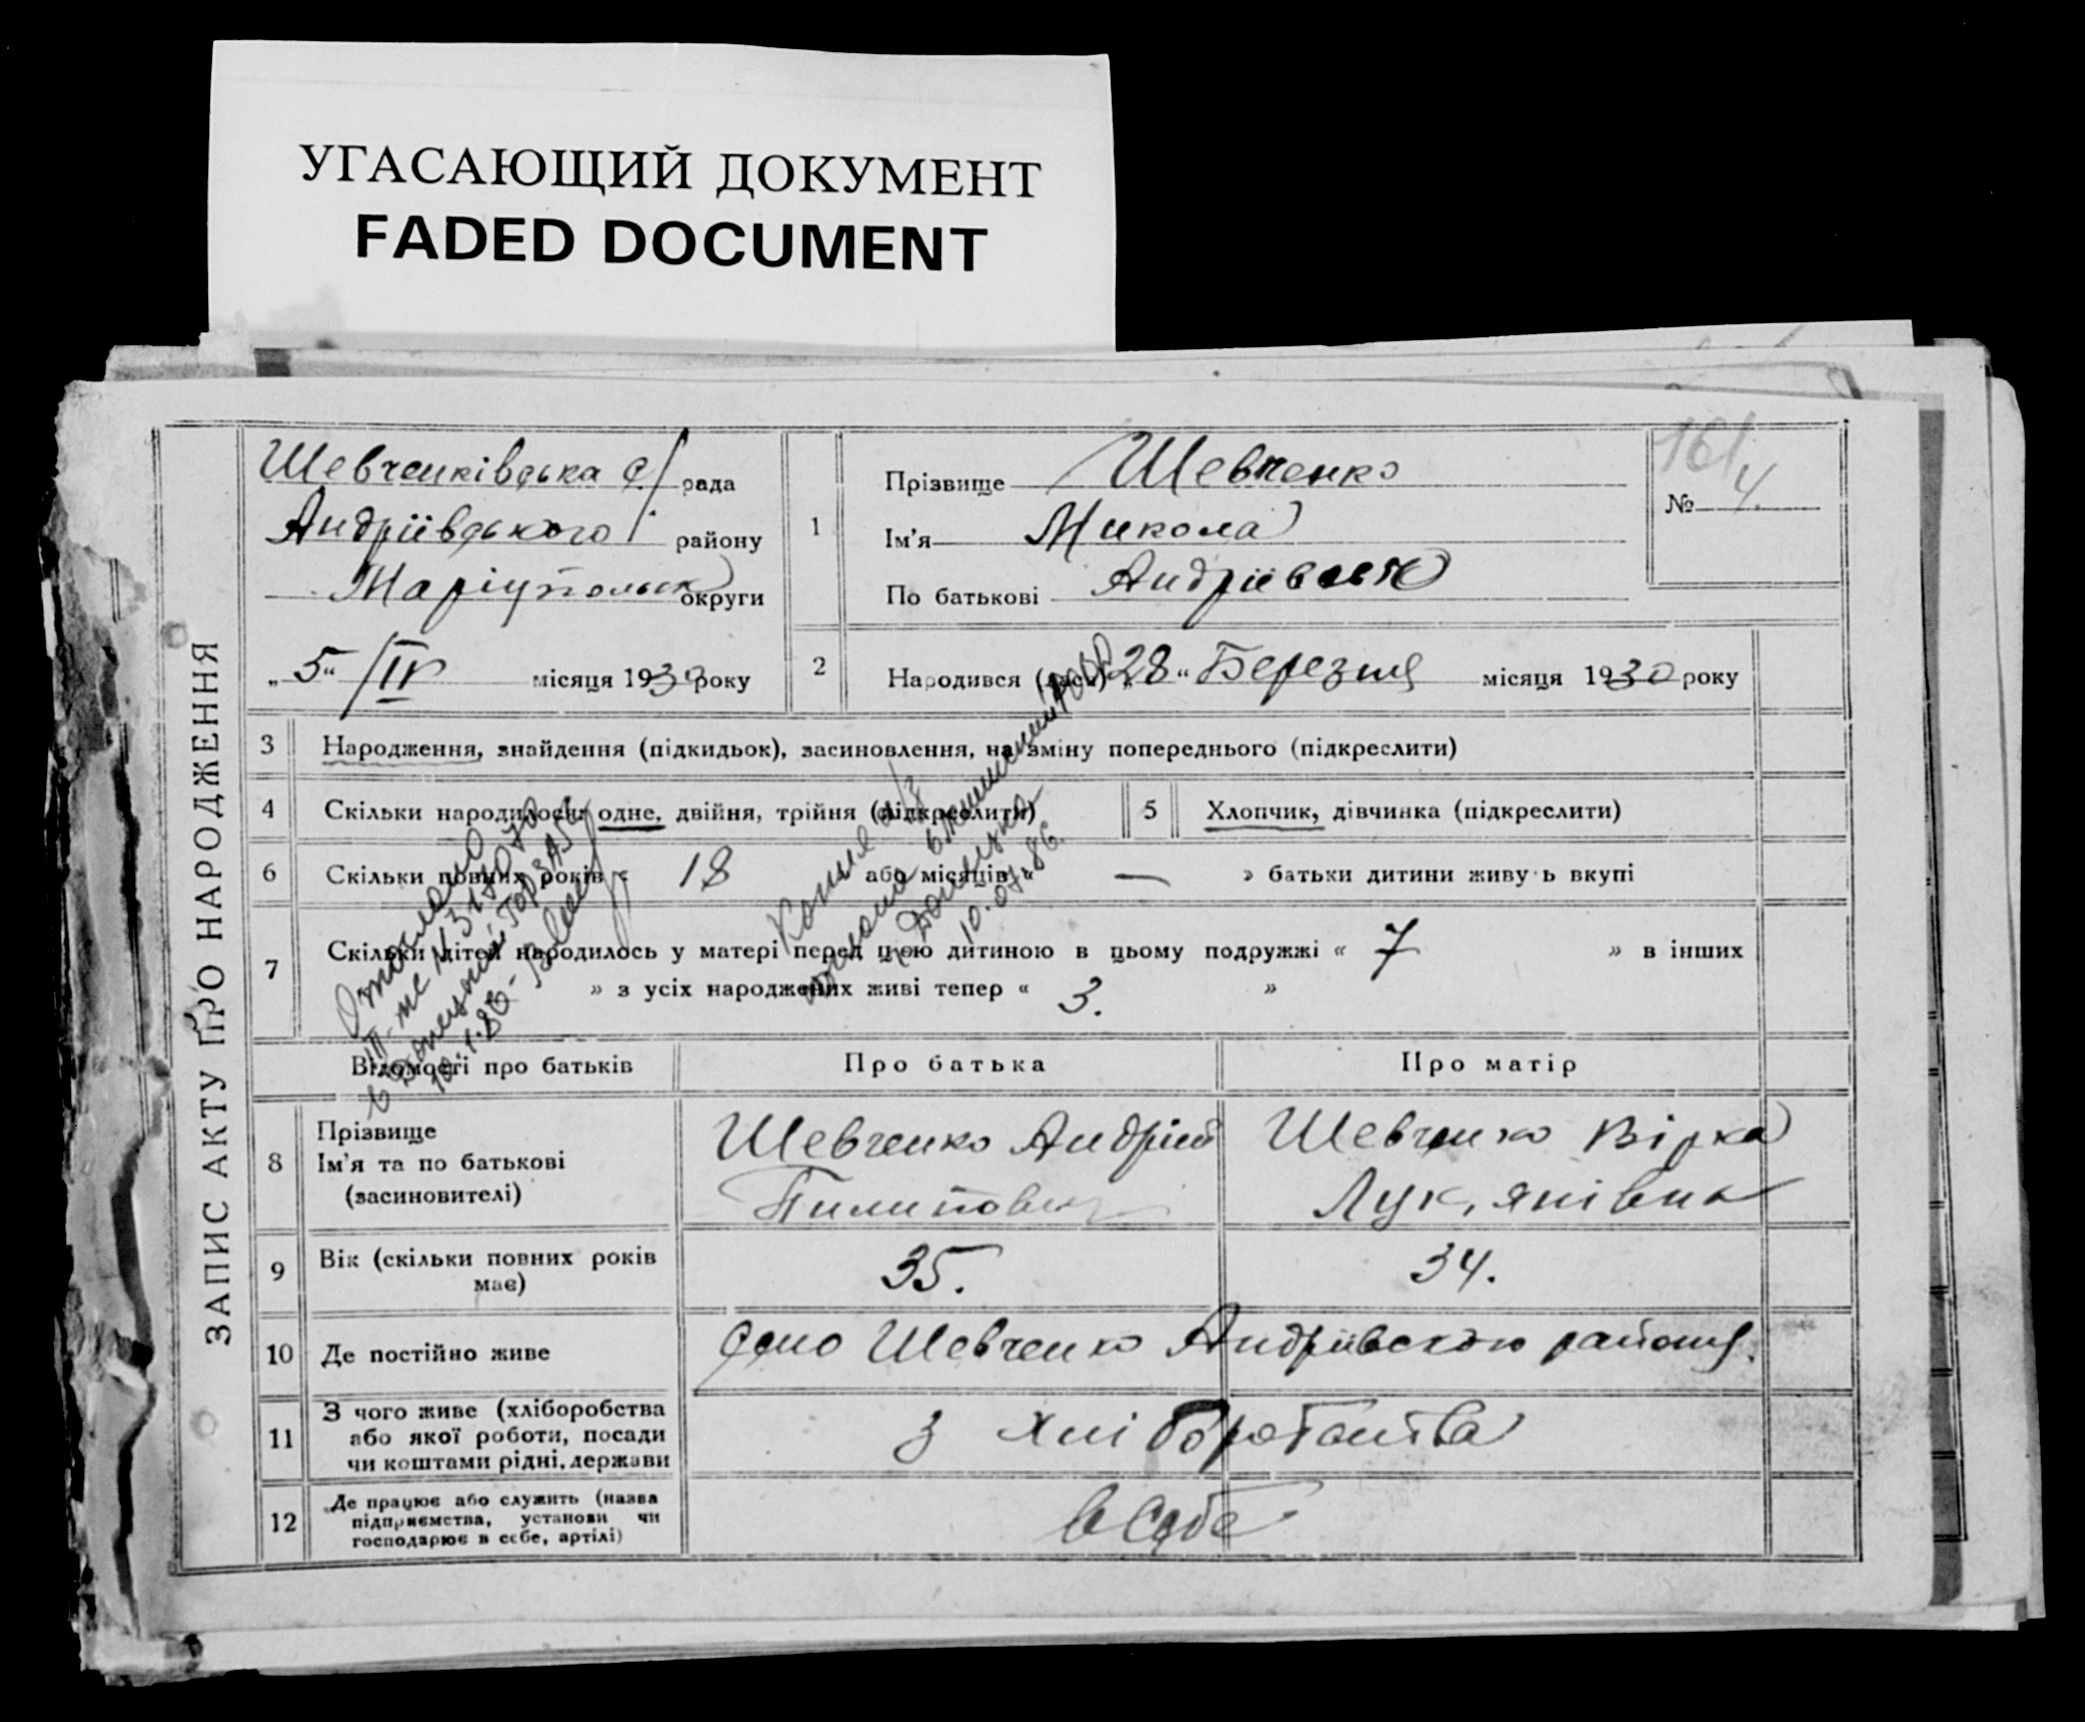 УГАСАЮЩИЙ ДОКУМЕНТ
FADED DOCUMENT
ЗАПИС АКТУ ПРО НАРОДЖЕННЯ
Шевченківська с/рада
Андріївського району
Маріупольськ округи
„5“ /IV місяця 1930 року
1
Прізвище Шевченко
Ім'я Микола
По батькові Андріевич
161
№ 4
2
Народився „28“ Березня місяця 1930 року
3 Народження, знайдення (підкидьок), засиновлення, на зміну попереднього (підкреслити)
4 Скільки народилось: одне, двійня, трійня (підкреслити)
5 Хлопчик, дівчинка (підкреслити)
6 Скільки повних років « 18 або місяців « — » батьки дитини живуть вкупі
7 Скільки дітей народилось у матері перед цією дитиною в цьому подружжі « 7 » в інших
» з усіх народжених живі тепер « 3. »
Отослано
10.1.86
Копия а/з
Донецка
10.07.86.
Відомості про батьків Про батька Про матір
8 Прізвище
Ім'я та по батькові
(засиновителі)
Шевченко Андрій
Пилипович
Шевченко Вірка
Лук,янівна
9 Вік (скільки повних років
має)
35.
34.
10 Де постійно живе
село Шевченко Андріівского району.
11 З чого живе (хліборобства
або якої роботи, посади
чи коштами рідні, держави
з хліборобства
12 Де працює або служить (назва
підприємства, установи чи
господарює в себе, артілі)
в себе